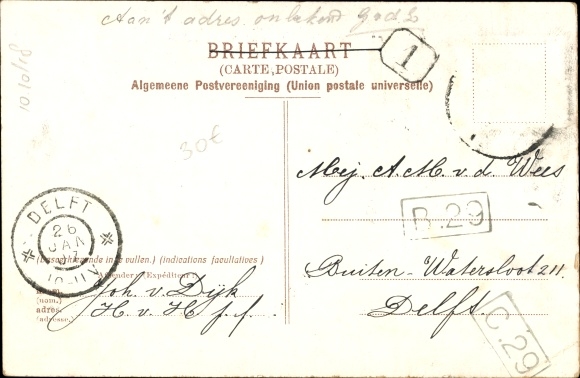 Aan't adres onbekend
BRIEFKAART
(CARTE POSTALE)
Algemeene Postvereeniging (Union postale universelle)
1
30€
Mej. A. M. v. d. Wees
B.29
Buiten-Watersloot 211
Delft.
C.29
DELFT
26
JAN
10-11V
in te vullen.) (indications facultatives)
Afzender (Expéditeur)
(nom.)
adres.
(adresse.)
Joh. v. Dijk
H. v. H. f.f.